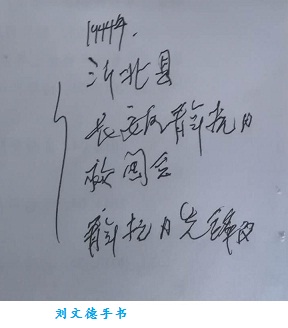 1944年.
沂北县
长安区青年抗日
检阅会
青年抗日先锋队
刘文德手书